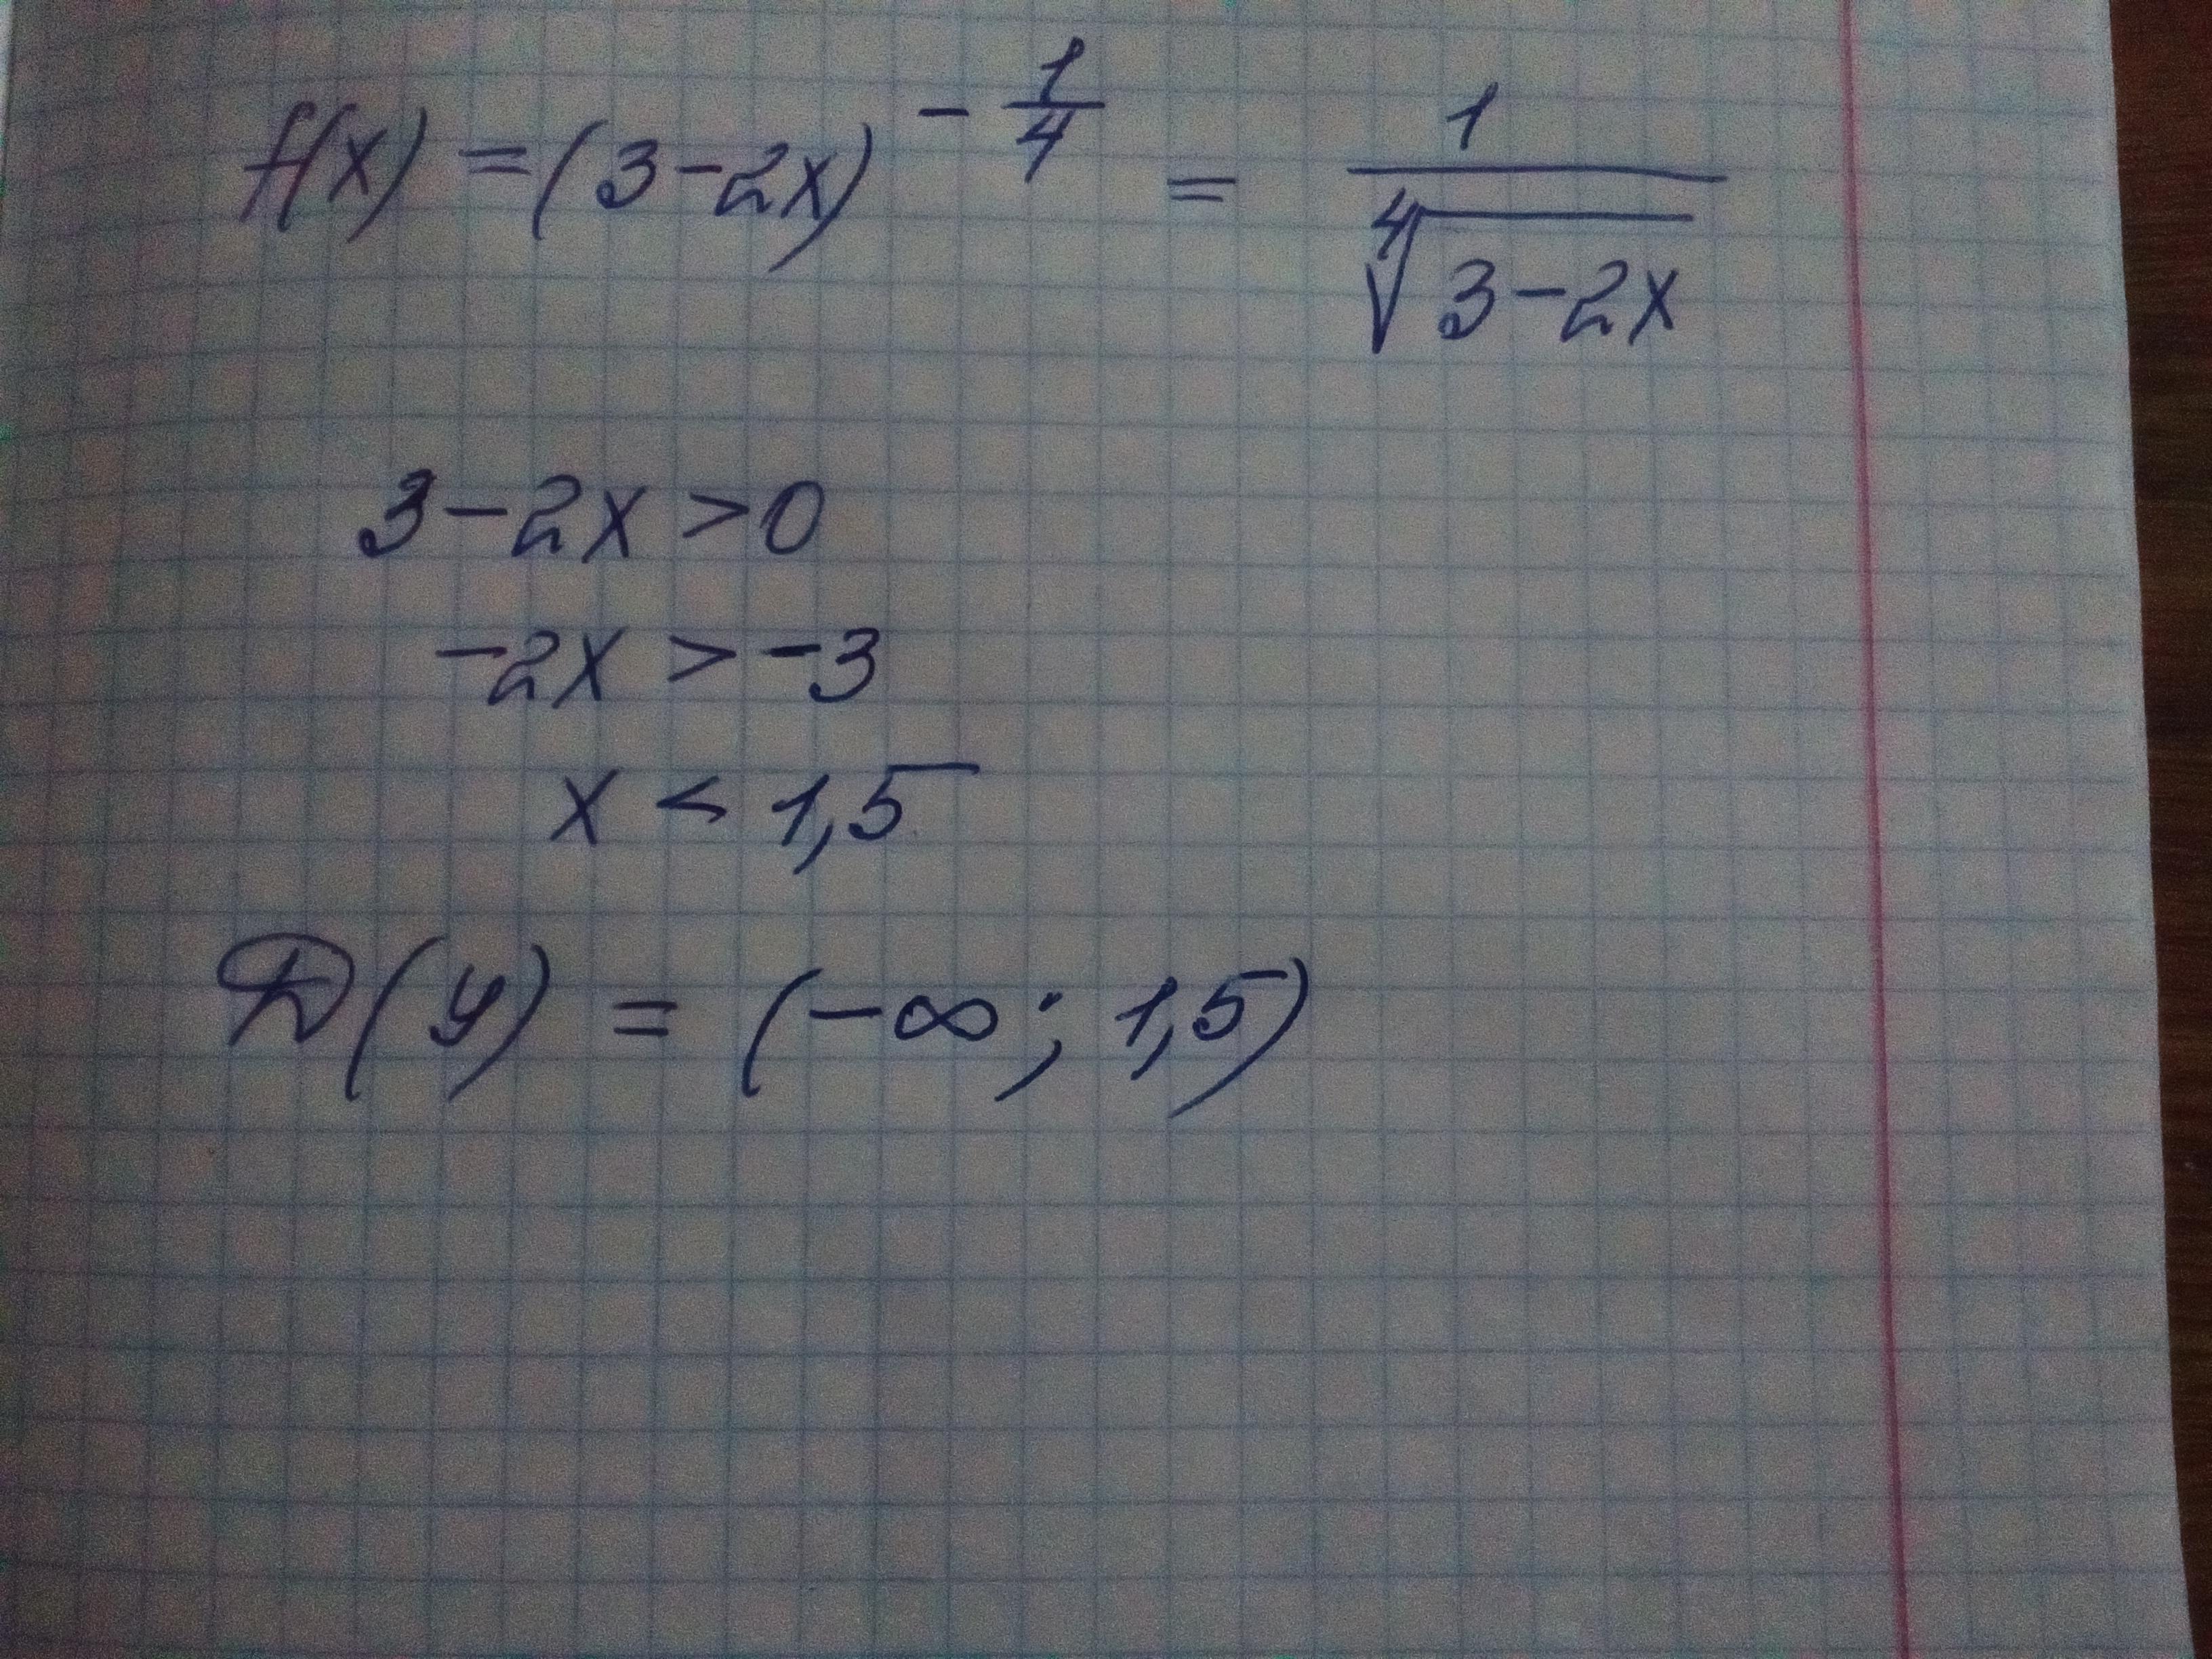 f(x) = (3-2x)^{-\frac{1}{4}} = \frac{1}{\sqrt[4]{3-2x}}
3-2x>0
-2x > -3
x < 1,5
D(y) = (-∞; 1,5)